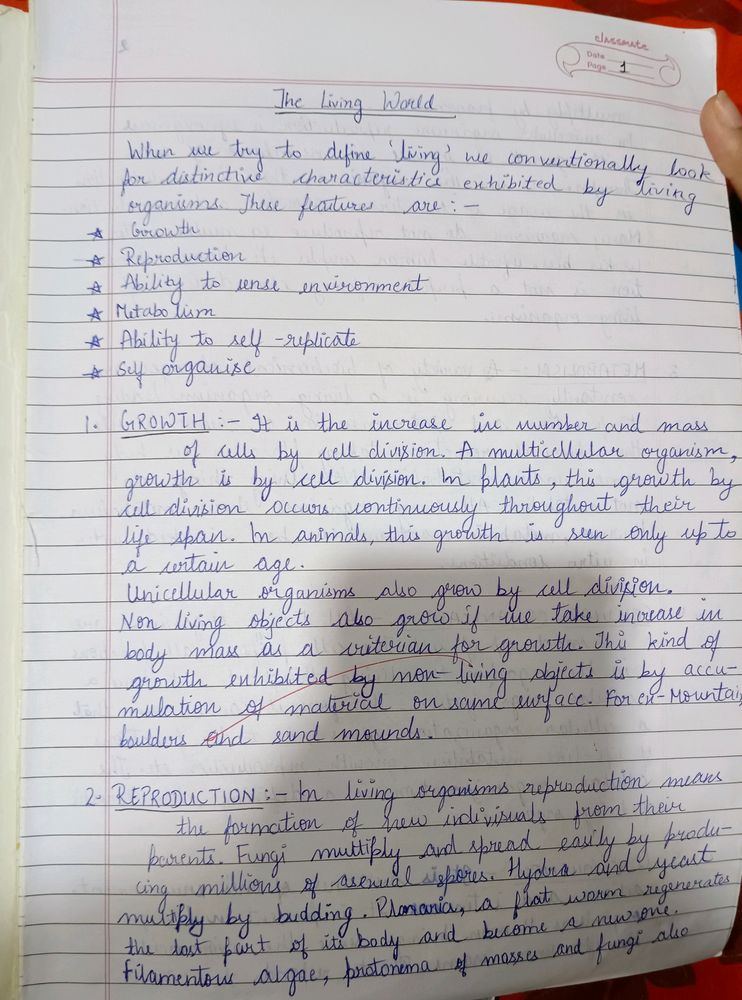 classmate
Date
Page 1
The Living World
When we try to define 'living' we conventionally look
for distinctive characteristics exhibited by living
organisms. These features are :-
☆ Growth
☆ Reproduction
☆ Ability to sense environment
☆ Metabolism
☆ Ability to self-replicate
☆ Self organise
1. GROWTH :- It is the increase in number and mass
of cells by cell division. A multicellular organism,
growth is by cell division. In plants, this growth by
cell division occurs continuously throughout their
life span. In animals, this growth is seen only up to
a certain age.
Unicellular organisms also grow by cell division.
Non living objects also grow if we take increase in
body mass as a criterian for growth. This kind of
growth exhibited by non-living objects is by accu-
mulation of material on same surface. For ex- Mountain,
boulders and sand mounds.
2. REPRODUCTION :- In living organisms reproduction means
the formation of new indivisuals from their
parents. Fungi multiply and spread easily by produ-
cing millions of asexual spores. Hydra and yeast
multiply by budding. Planaria, a flat worm regenerates
the lost part of its body and become a new one.
Filamentous algae, protonema of mosses and fungi also